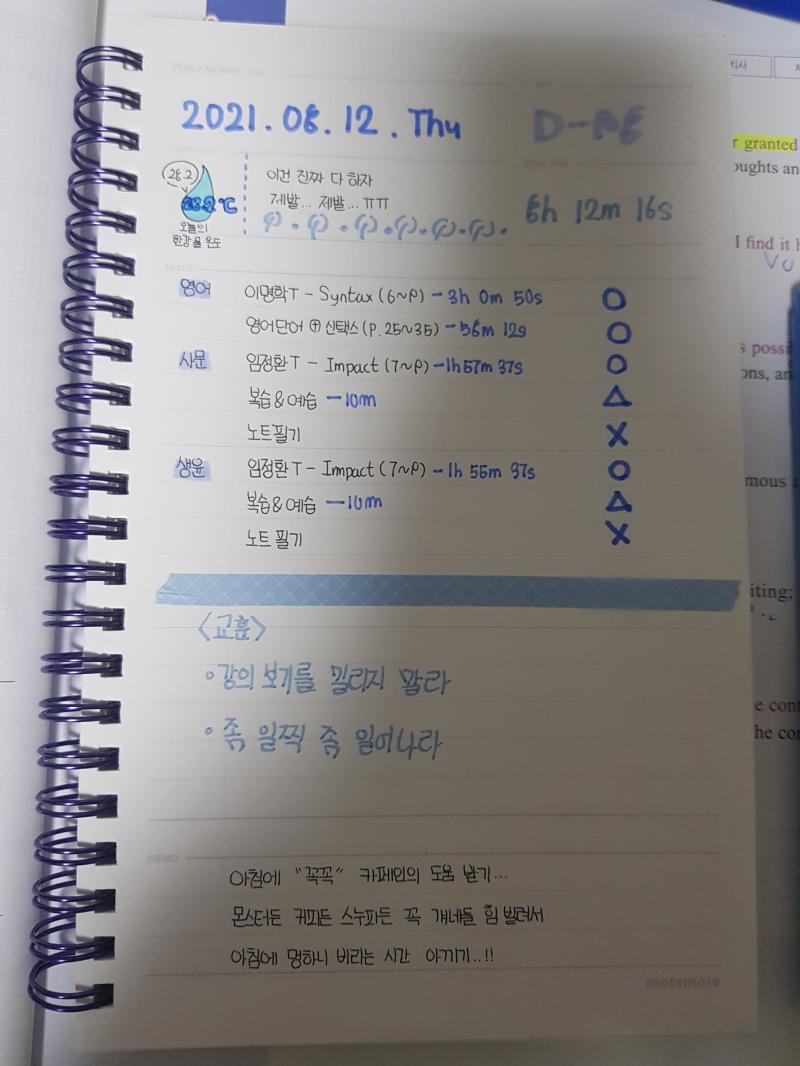 YEAR / MONTH / DAY
2021.08.12.Thu
D-98
COMMENT
TOTAL TIME
28.2
28.2℃
오늘의
한강 물 온도
이건 진짜 다 하자
제발... 제발...ㅠㅠ
8h 12m 16s
TASKS
영어 이명학T - Syntax (6~8) - 3h 0m 50s O
영어단어 ⊕ 신택스 (P.25~35) - 58m 12s O
사문 임정환T - Impact (7~8) - 1h 57m 37s O
복습&예습 - 10m △
노트필기 X
생윤 임정환T - Impact (7~8) - 1h 55m 37s O
복습&예습 - 10m △
노트 필기 X
<교훈>
• 강의 보기를 밀리지 말라
• 좀 일찍 좀 일어나라
MEMO
아침에 "꼭꼭" 카페인의 도움 받기...
몬스터든 커피든 스누피든 꼭 걔네들 힘 빌려서
아침에 멍하니 버리는 시간 아끼기..!!
motemote
r granted
oughts an
I find it h
s possi
ons, an
mous
iting:
e cont
he co